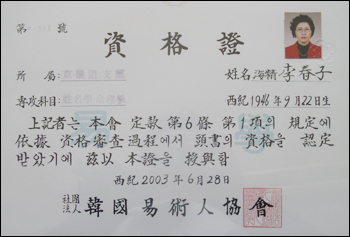 第 號
資格證
所 屬
姓名 海精 李春子
專攻科目:
西紀 1948年 9月 22日生
上記者는 本會 定款 第6條 第1項의 規定에
依據 資格審査過程에서 頭書의 資格을 認定
받았기에 玆以 本證을 授與함
西紀 2003年 6月 28日
社團法人 韓國易術人協會